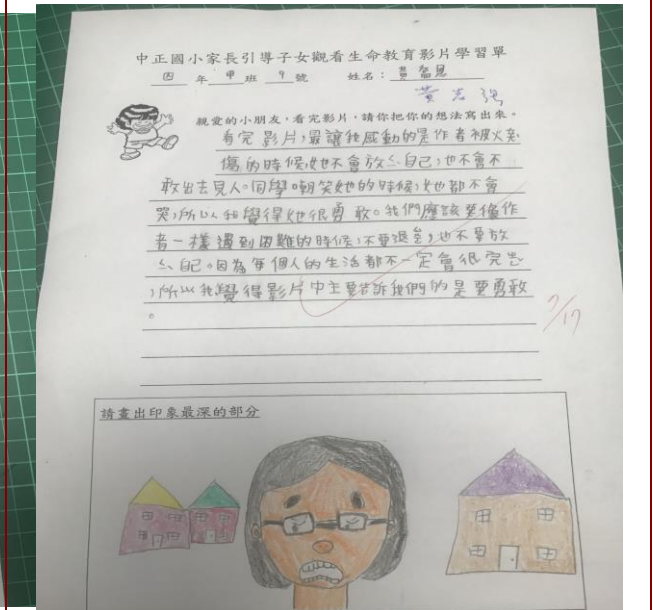 中正國小家長引導子女觀看生命教育影片學習單
四 年 甲 班 9 號 姓名:黃
黃志強
親愛的小朋友,看完影片,請你把你的想法寫出來。
看完影片,最讓我感動的是作者被火
傷的時候,她也不會放 自己,也不會不
敢出去見人。同學嘲笑她的時候,她都不會
哭,所以我覺得她很勇敢。我們應該要像作
者一樣遇到困難的時候,不要退 ,也不要放
自己。因為每個人的生活都不一定會很完
,所以我覺得影片中主要告訴我們的是要勇敢
。
9/17
請畫出印象最深的部分